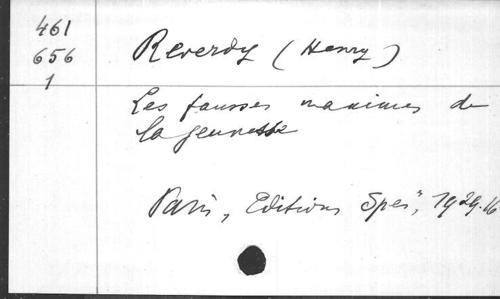 461
656
1
Reverdy (Henry)
Les fausses maximes de
la jeunesse
Paris, Editions "Spes", 1929. 16